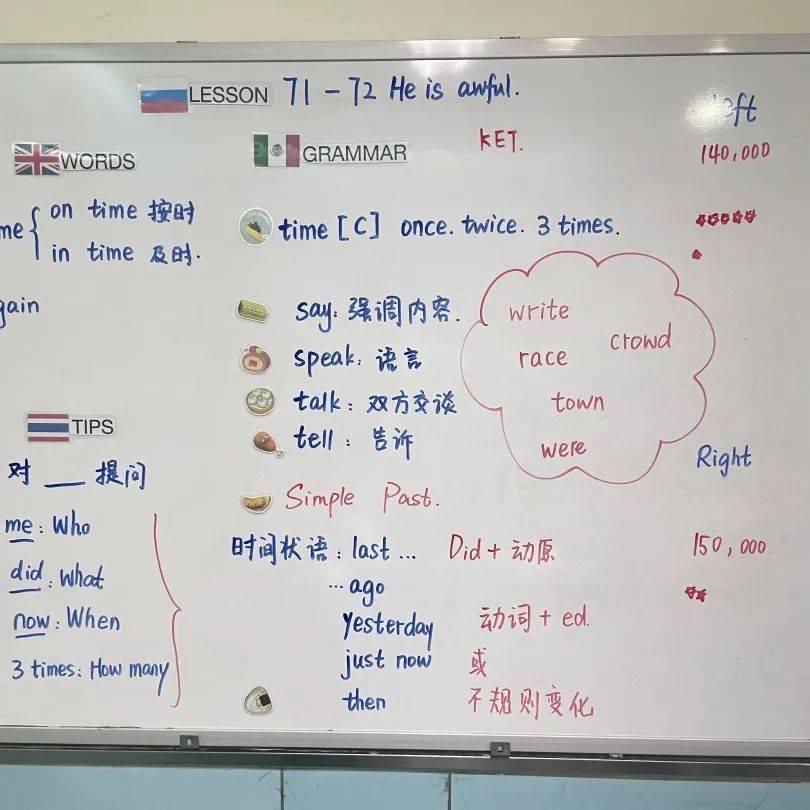 LESSON 71 - 72 He is awful.
WORDS
me { on time 按时
in time 及时.
gain
TIPS
对 ___ 提问
me: Who
did: What
now: When
3 times: How many
GRAMMAR
KET.
time [C] once. twice. 3 times.
say: 强调内容.
speak: 语言
talk: 双方交谈
tell: 告诉
write
crowd
race
town
were
Simple Past.
时间状语: last ... Did + 动原
... ago
yesterday 动词 + ed.
just now 或
then 不规则变化
left
140,000
Right
150,000